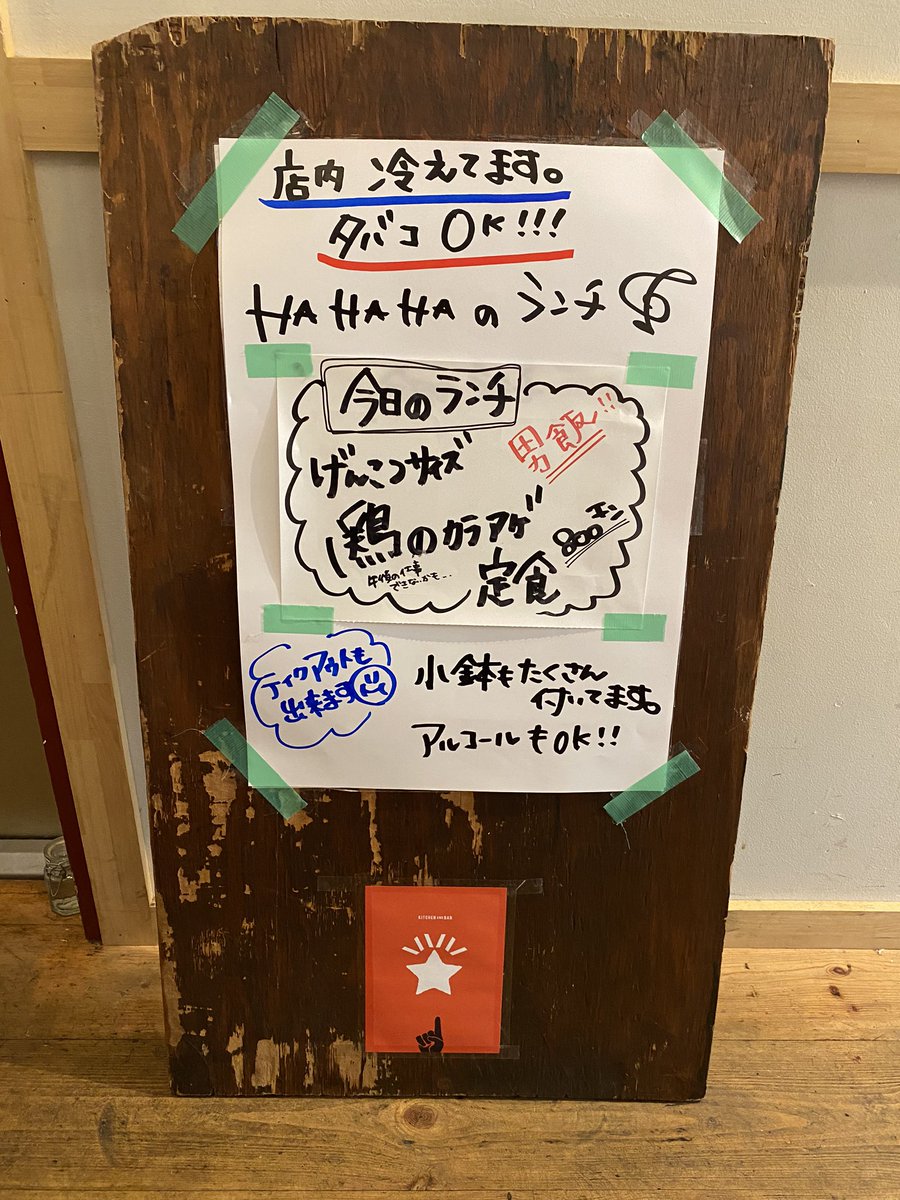 店内 冷えてます。
タバコ OK!!!
HAHAHAのランチ
今日のランチ
男飯!!
げんこつサイズ
鶏のカラアゲ
800エン
定食
午後の仕事
できな..かも...
テイクアウトも
出来ます
小鉢もたくさん
付いてます。
アルコールもOK!!
KITCHEN AND BAR